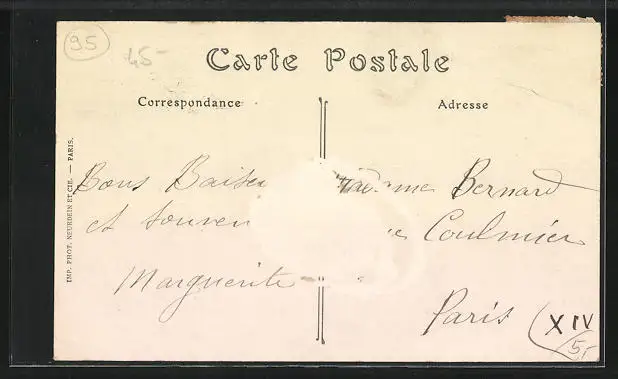 95
45-
Carte Postale
Correspondance
Adresse
IMP. PHOT. NEURDEIN ET CIE. — PARIS.
Bons Baise
et souven
Marguerite
Madame Bernard
Coulmier
Paris XIV
5,-